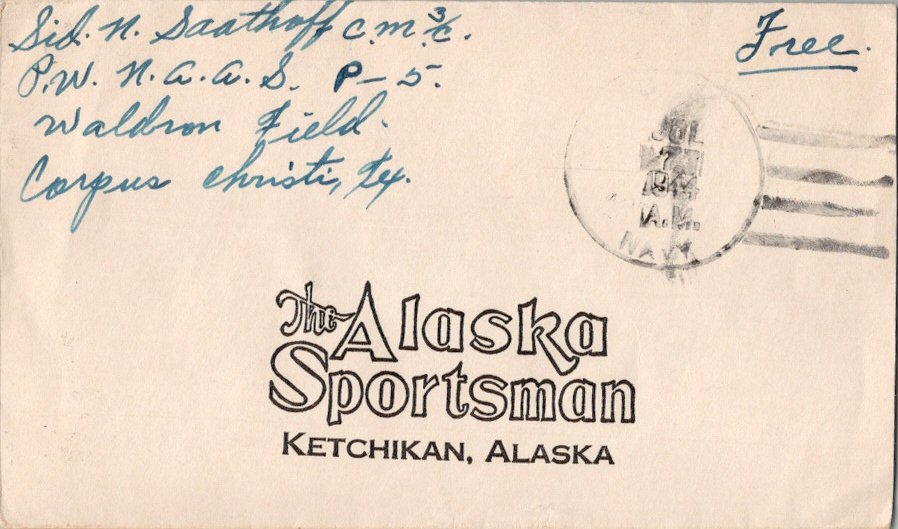 Sid. N. Saathoff C.M. 3/c.
P.W. N.A.A.S. P-5.
Waldron Field.
Corpus Christi, Tex.
Free.
JUL
7
1944
A.M.
NAVY
The Alaska
Sportsman
KETCHIKAN, ALASKA